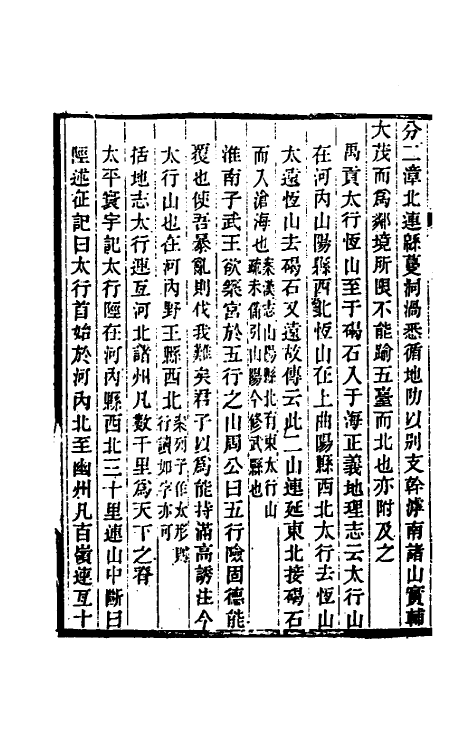 分二漳北連緜蔓洞渦悉循地肪以別支幹滹南諸山實輔
大茂而爲鄰境所限不能踰五臺而北也亦附及之
禹貢太行恆山至于碣石入于海正義地理志云太行山
在河內山陽縣西北恆山在上曲陽縣西北太行去恆山
太遠恆山去碣石又遠故傳云此二山連延東北接碣石
而入滄海也案漢志山陽縣北有東太行山疏未備引山陽今修武縣也
淮南子武王欲築宮於五行之山周公曰五行險固德能
覆也使吾暴亂則伐我難矣君子以爲能持滿高誘注今
太行山也在河內野王縣西北案列子作太形則行讀如字亦可
括地志太行連亙河北諸州凡數千里爲天下之脊
太平寰宇記太行陘在河內縣西北三十里連山中斷曰
陘述征記曰太行首始於河內北至幽州凡百嶺連亙十